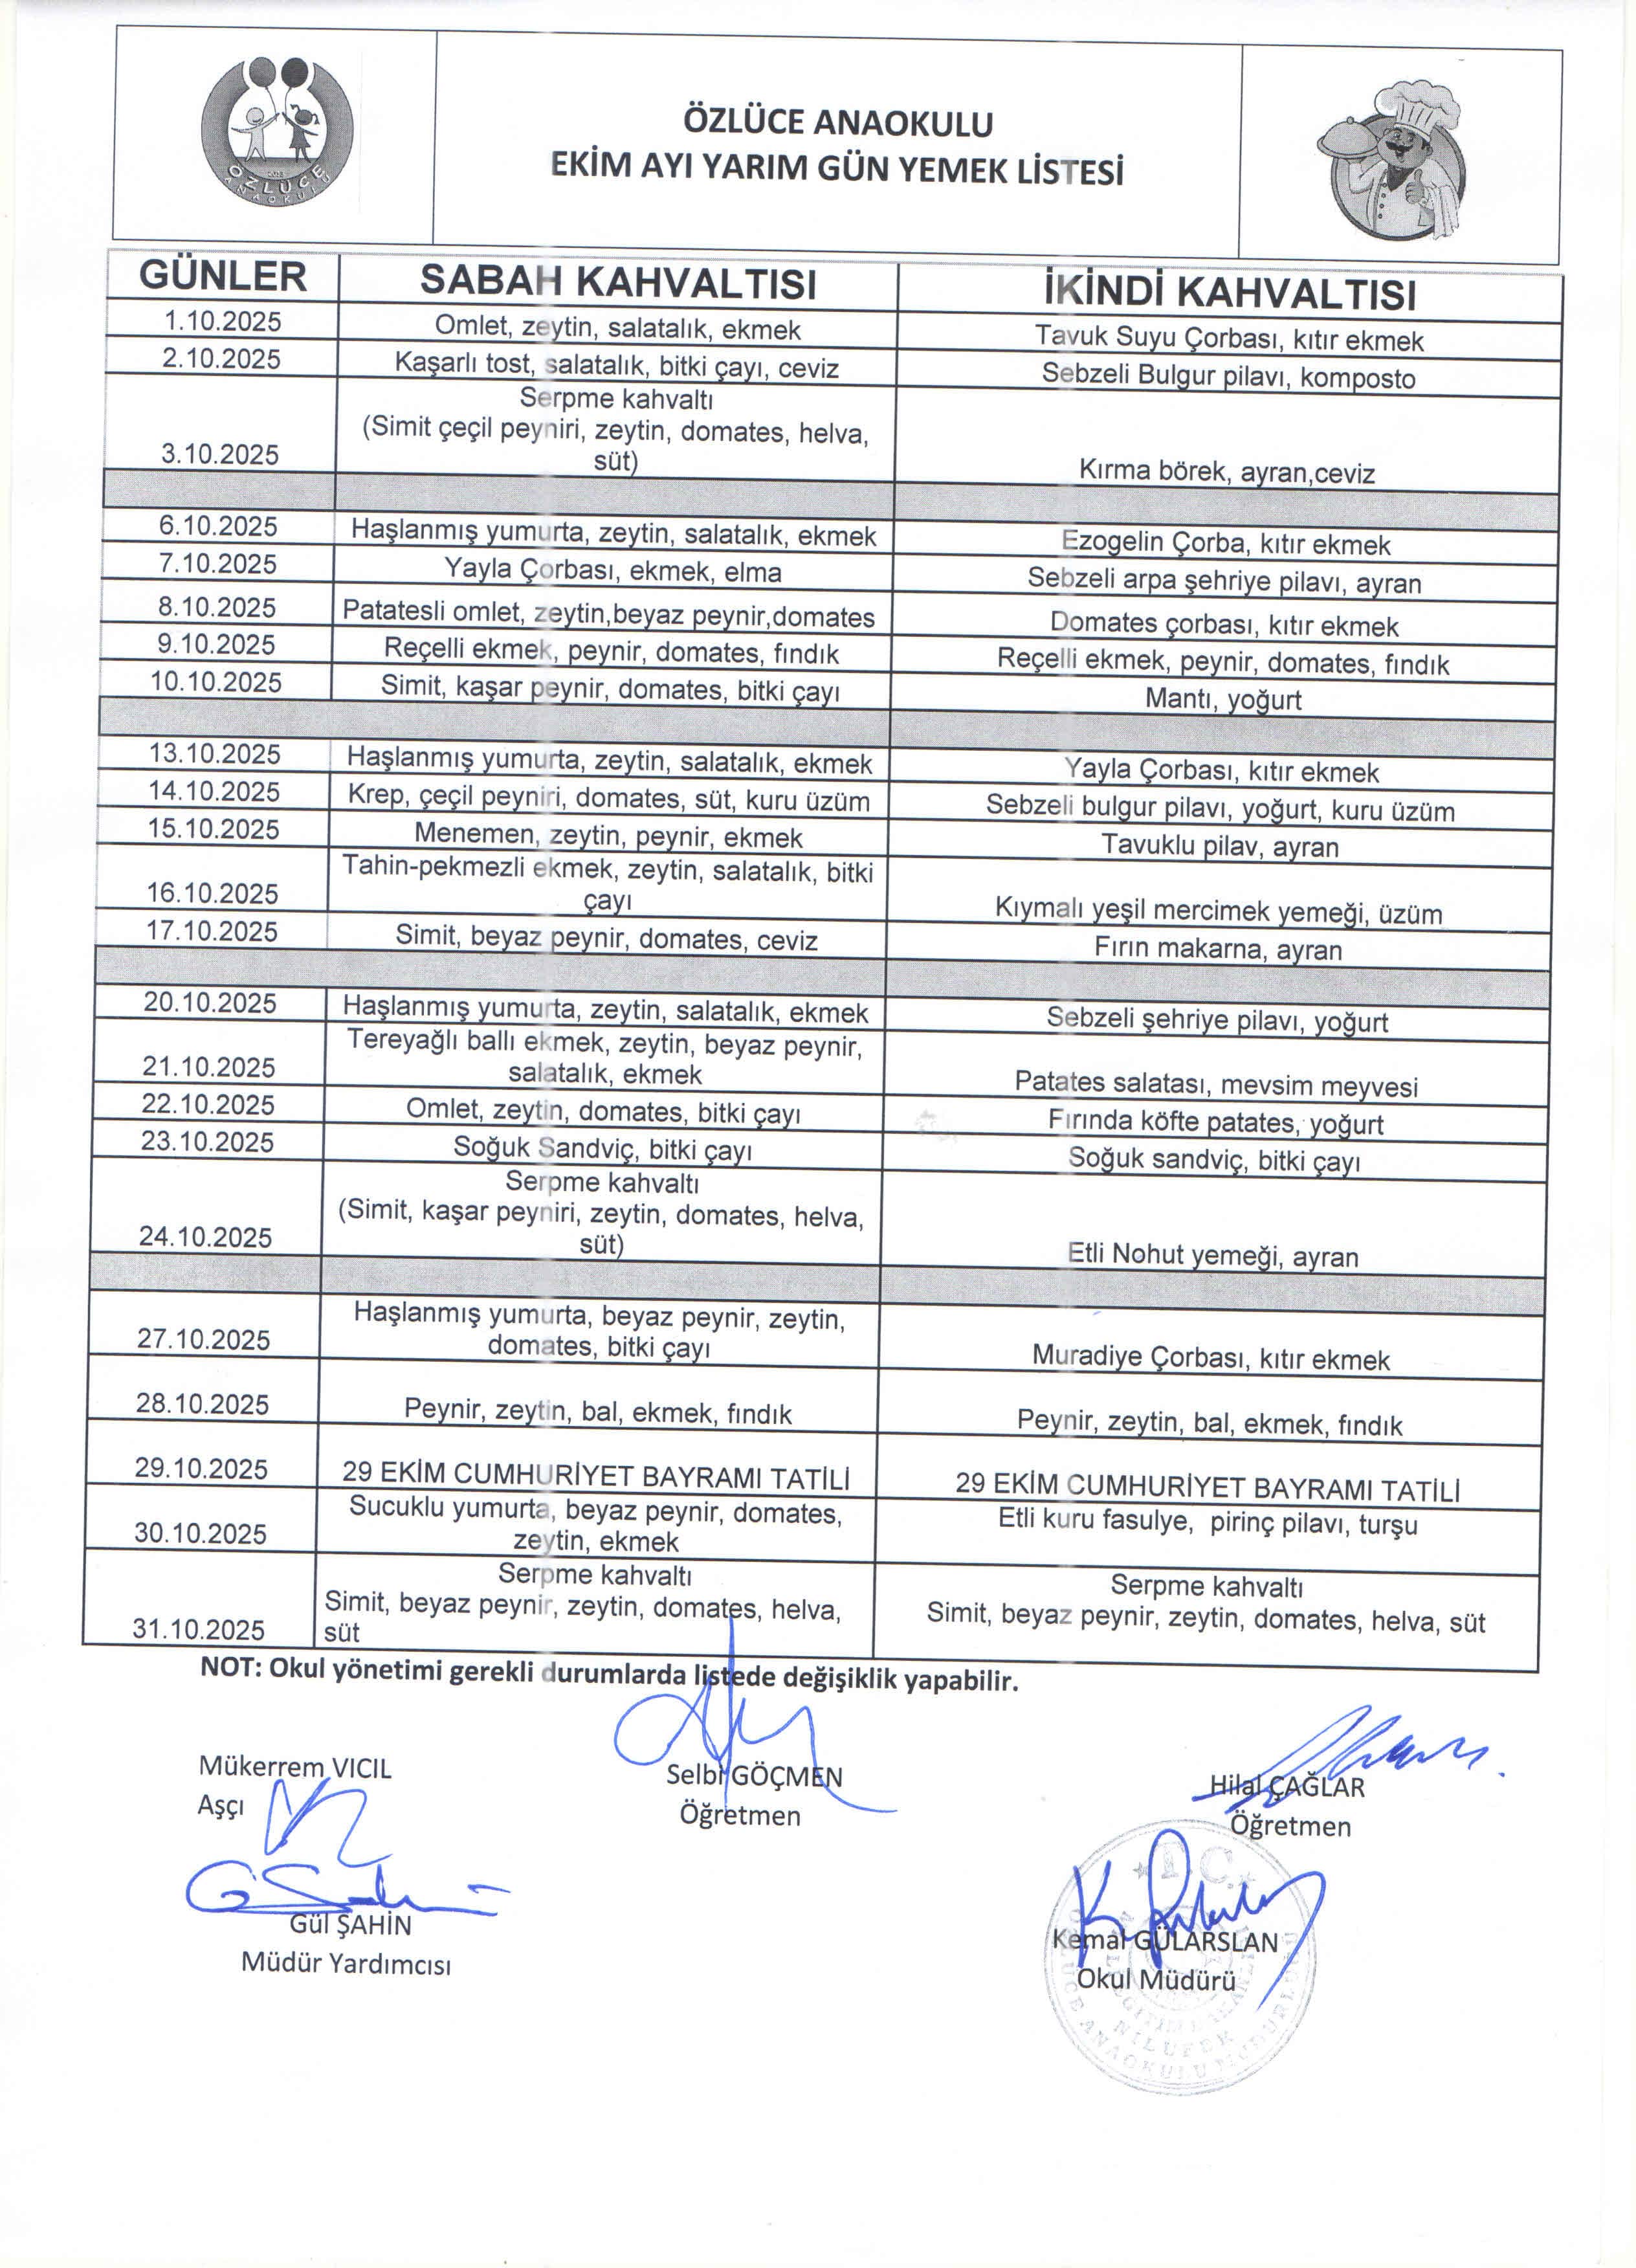 ÖZLÜCE ANAOKULU
ÖZLÜCE ANAOKULU
EKİM AYI YARIM GÜN YEMEK LİSTESİ
GÜNLER SABAH KAHVALTISI İKİNDİ KAHVALTISI
1.10.2025 Omlet, zeytin, salatalık, ekmek Tavuk Suyu Çorbası, kıtır ekmek
2.10.2025 Kaşarlı tost, salatalık, bitki çayı, ceviz Sebzeli Bulgur pilavı, komposto
Serpme kahvaltı
(Simit çeçil peyniri, zeytin, domates, helva,
3.10.2025 süt) Kırma börek, ayran,ceviz
6.10.2025 Haşlanmış yumurta, zeytin, salatalık, ekmek Ezogelin Çorba, kıtır ekmek
7.10.2025 Yayla Çorbası, ekmek, elma Sebzeli arpa şehriye pilavı, ayran
8.10.2025 Patatesli omlet, zeytin,beyaz peynir,domates Domates çorbası, kıtır ekmek
9.10.2025 Reçelli ekmek, peynir, domates, fındık Reçelli ekmek, peynir, domates, fındık
10.10.2025 Simit, kaşar peynir, domates, bitki çayı Mantı, yoğurt
13.10.2025 Haşlanmış yumurta, zeytin, salatalık, ekmek Yayla Çorbası, kıtır ekmek
14.10.2025 Krep, çeçil peyniri, domates, süt, kuru üzüm Sebzeli bulgur pilavı, yoğurt, kuru üzüm
15.10.2025 Menemen, zeytin, peynir, ekmek Tavuklu pilav, ayran
Tahin-pekmezli ekmek, zeytin, salatalık, bitki
16.10.2025 çayı Kıymalı yeşil mercimek yemeği, üzüm
17.10.2025 Simit, beyaz peynir, domates, ceviz Fırın makarna, ayran
20.10.2025 Haşlanmış yumurta, zeytin, salatalık, ekmek Sebzeli şehriye pilavı, yoğurt
Tereyağlı ballı ekmek, zeytin, beyaz peynir,
21.10.2025 salatalık, ekmek Patates salatası, mevsim meyvesi
22.10.2025 Omlet, zeytin, domates, bitki çayı Fırında köfte patates, yoğurt
23.10.2025 Soğuk Sandviç, bitki çayı Soğuk sandviç, bitki çayı
Serpme kahvaltı
(Simit, kaşar peyniri, zeytin, domates, helva,
24.10.2025 süt) Etli Nohut yemeği, ayran
Haşlanmış yumurta, beyaz peynir, zeytin,
27.10.2025 domates, bitki çayı Muradiye Çorbası, kıtır ekmek
28.10.2025 Peynir, zeytin, bal, ekmek, fındık Peynir, zeytin, bal, ekmek, fındık
29.10.2025 29 EKİM CUMHURİYET BAYRAMI TATİLİ 29 EKİM CUMHURİYET BAYRAMI TATİLİ
Sucuklu yumurta, beyaz peynir, domates, Etli kuru fasulye, pirinç pilavı, turşu
30.10.2025 zeytin, ekmek
Serpme kahvaltı Serpme kahvaltı
Simit, beyaz peynir, zeytin, domates, helva, Simit, beyaz peynir, zeytin, domates, helva, süt
31.10.2025 süt
NOT: Okul yönetimi gerekli durumlarda listede değişiklik yapabilir.
Mükerrem VICIL Selbi GÖÇMEN Hilal ÇAĞLAR
Aşçı Öğretmen Öğretmen
T.C.
Gül ŞAHİN Kemal GÜLARSLAN
Müdür Yardımcısı Okul Müdürü
NİLÜFER